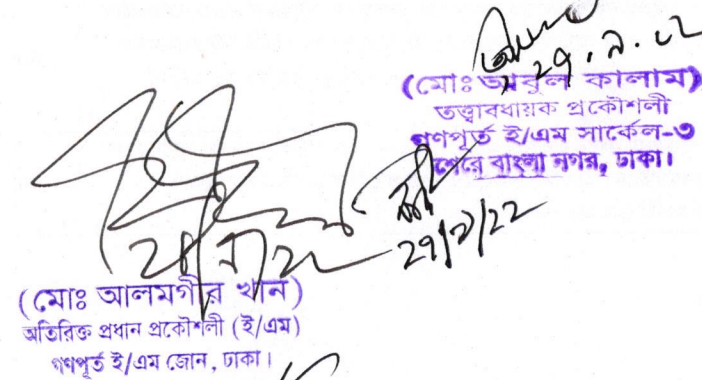 ২৭.৯.১২
(মোঃ আবুল কালাম)
তত্ত্বাবধায়ক প্রকৌশলী
গণপূর্ত ই/এম সার্কেল-৩
শেরে বাংলা নগর, ঢাকা।
(মোঃ আলমগীর খান)
অতিরিক্ত প্রধান প্রকৌশলী (ই/এম)
গণপূর্ত ই/এম জোন, ঢাকা।